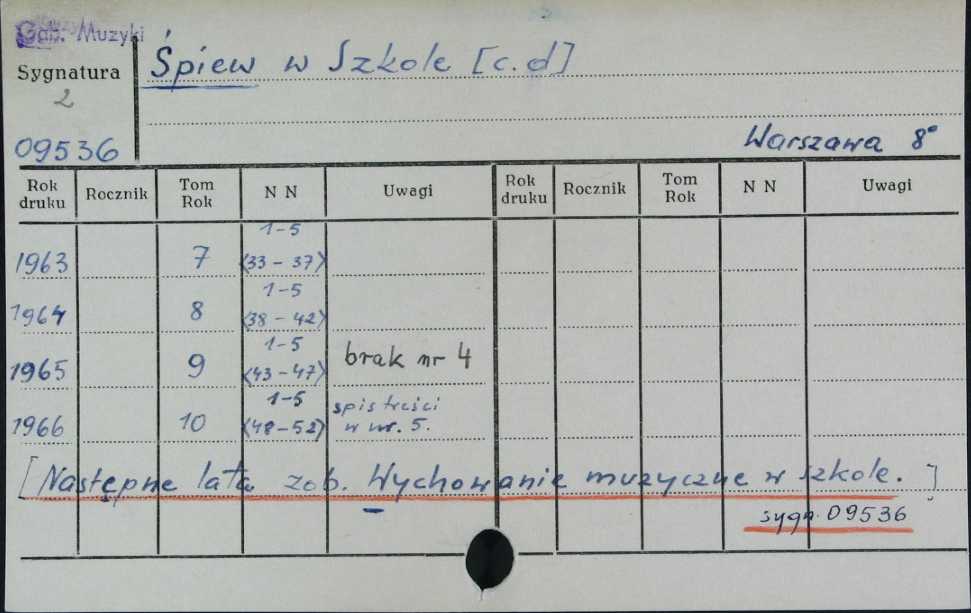 Gab. Muzyki
Sygnatura
2
09536
Śpiew w Szkole [c.d]
Warszawa 8°
Rok druku Rocznik Tom Rok N N Uwagi Rok druku Rocznik Tom Rok N N Uwagi
1963 7 1-5 <33-37>
1964 8 1-5 <38-42>
1965 9 1-5 <43-47> brak nr 4
1966 10 1-5 <48-52> spis treści w nr. 5.
[Następne lata zob. Wychowanie muzyczne w szkole.]
sygn. 09536